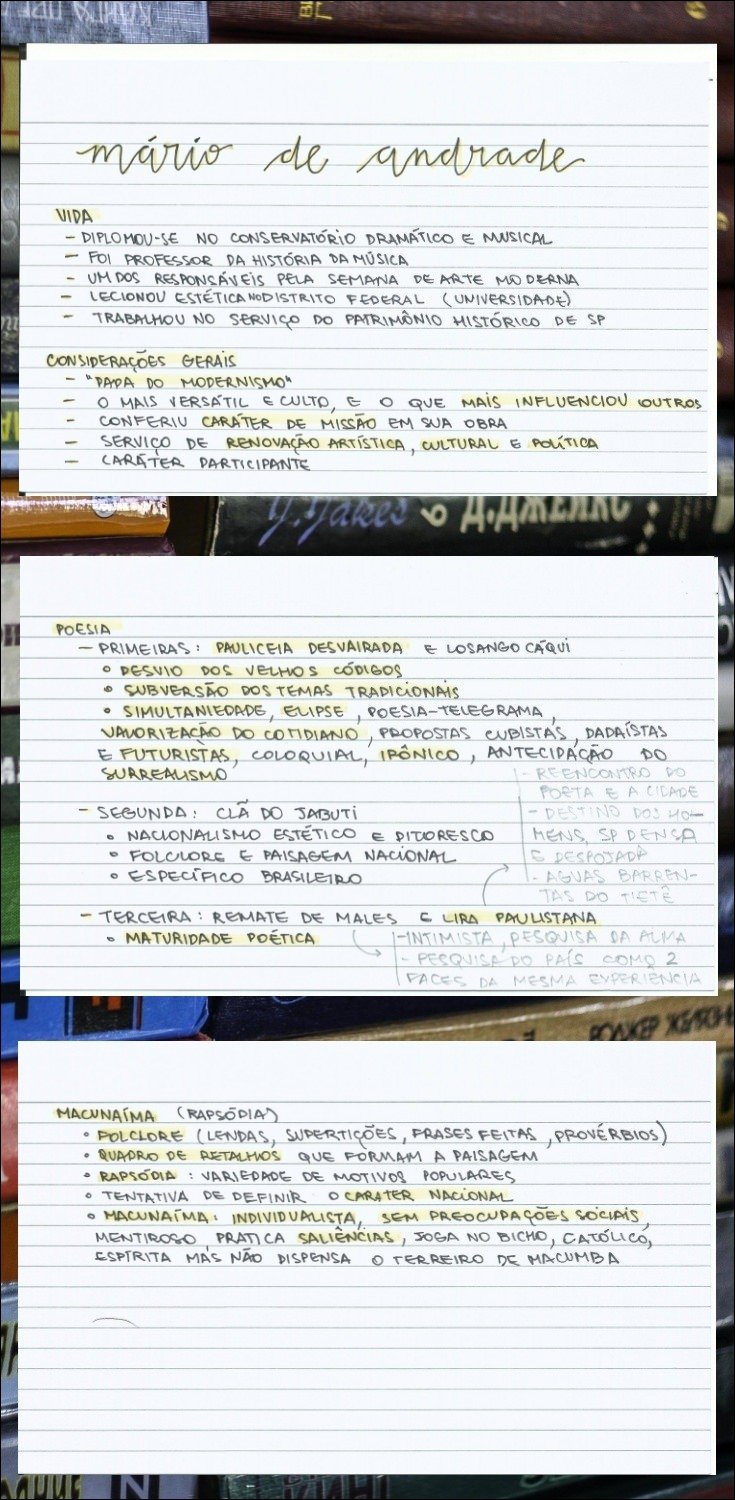 mário de andrade
VIDA
- DIPLOMOU-SE NO CONSERVATÓRIO DRAMÁTICO E MUSICAL
- FOI PROFESSOR DA HISTÓRIA DA MÚSICA
- UM DOS RESPONSÁVEIS PELA SEMANA DE ARTE MODERNA
- LECIONOU ESTÉTICA NO DISTRITO FEDERAL (UNIVERSIDADE)
- TRABALHOU NO SERVIÇO DO PATRIMÔNIO HISTÓRICO DE SP
CONSIDERAÇÕES GERAIS
- "PAPA DO MODERNISMO"
- O MAIS VERSÁTIL E CULTO, E O QUE MAIS INFLUENCIOU OUTROS
- CONFERIU CARÁTER DE MISSÃO EM SUA OBRA
- SERVIÇO DE RENOVAÇÃO ARTÍSTICA, CULTURAL E POLÍTICA
- CARÁTER PARTICIPANTE
J. Jakes Д. ДЖЕЙКС
POESIA
- PRIMEIRAS: PAULICEIA DESVAIRADA E LOSANGO CÁQUI
• DESVIO DOS VELHOS CÓDIGOS
• SUBVERSÃO DOS TEMAS TRADICIONAIS
• SIMULTANIEDADE, ELIPSE, POESIA-TELEGRAMA,
VALORIZAÇÃO DO COTIDIANO, PROPOSTAS CUBISTAS, DADAÍSTAS
E FUTURISTAS, COLOQUIAL, IRÔNICO, ANTECIPAÇÃO DO
SURREALISMO
- REENCONTRO DO
POETA E A CIDADE
- DESTINO DOS HO-
MENS, SP DENSA
E DESPOJADA
- AGUAS BARREN-
TAS DO TIETÊ
- SEGUNDA: CLÃ DO JABUTI
• NACIONALISMO ESTÉTICO E PITORESCO
• FOLCLORE E PAISAGEM NACIONAL
• ESPECÍFICO BRASILEIRO
- TERCEIRA: REMATE DE MALES E LIRA PAULISTANA
• MATURIDADE POÉTICA
- INTIMISTA, PESQUISA DA ALMA
- PESQUISA DO PAÍS COMO 2
FACES DA MESMA EXPERIÊNCIA
MACUNAÍMA (RAPSÓDIA)
• FOLCLORE (LENDAS, SUPERTIÇÕES, FRASES FEITAS, PROVÉRBIOS)
• QUADRO DE RETALHOS QUE FORMAM A PAISAGEM
• RAPSÓDIA: VARIEDADE DE MOTIVOS POPULARES
• TENTATIVA DE DEFINIR O CARÁTER NACIONAL
• MACUNAÍMA: INDIVIDUALISTA, SEM PREOCUPAÇÕES SOCIAIS,
MENTIROSO PRATICA SALIÊNCIAS, JOGA NO BICHO, CATÓLICO,
ESPÍRITA MAS NÃO DISPENSA O TERREIRO DE MACUMBA